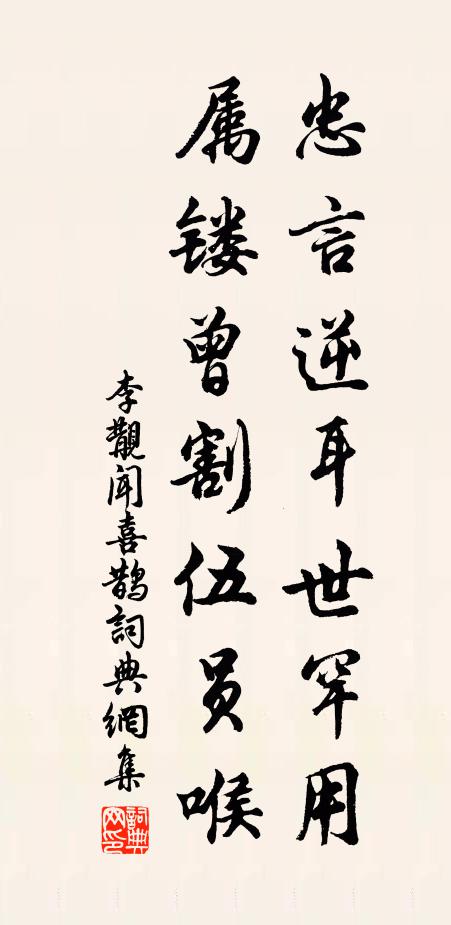 忠言逆耳世罕用
属镂曾割伍员喉
李觏闻喜鹊词典網集
詞典网印